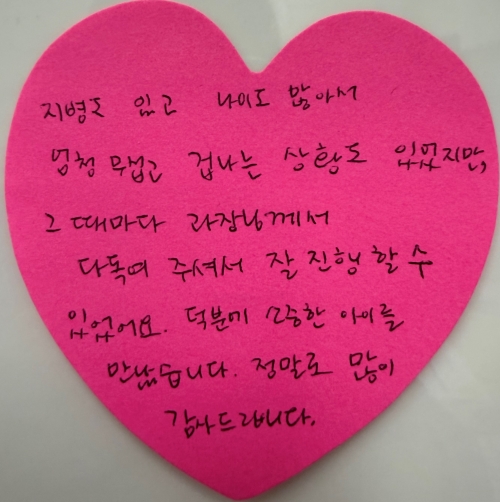 지병도 있고 나이도 많아서
엄청 무섭고 겁나는 상황도 있었지만,
그 때마다 과장님께서
다독여 주셔서 잘 진행 할 수
있었어요. 덕분에 소중한 아이를
만났습니다. 정말로 많이
감사드립니다.